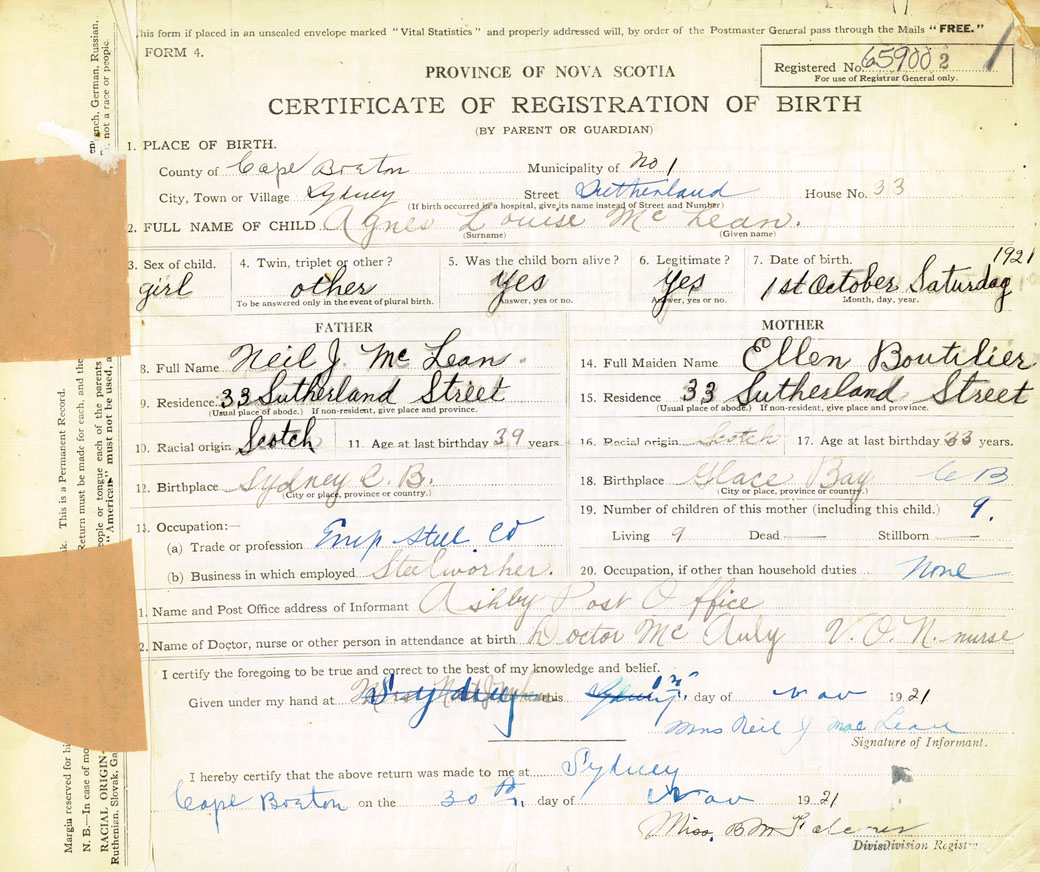 his form if placed in an unsealed envelope marked "Vital Statistics" and properly addressed will, by order of the Postmaster General pass through the Mails "FREE."
FORM 4.
Registered No. 65900 2
For use of Registrar General only.
PROVINCE OF NOVA SCOTIA
CERTIFICATE OF REGISTRATION OF BIRTH
(BY PARENT OR GUARDIAN)
1. PLACE OF BIRTH.
County of Cape Breton Municipality of No 1
City, Town or Village Sydney Street Sutherland House No. 33
(If birth occurred in a hospital, give its name instead of Street and Number)
2. FULL NAME OF CHILD Agnes Louise Mc Lean.
(Surname) (Given name)
3. Sex of child. 4. Twin, triplet or other? 5. Was the child born alive? 6. Legitimate? 7. Date of birth. 1921
girl other Yes Yes 1st October Saturday
To be answered only in the event of plural birth. Answer, yes or no. Answer, yes or no. Month, day, year.
FATHER
8. Full Name Neil J. Mc Lean
9. Residence. 33 Sutherland Street
(Usual place of abode.) If non-resident, give place and province.
10. Racial origin Scotch 11. Age at last birthday 39 years
12. Birthplace Sydney C. B.
(City or place, province or country.)
13. Occupation:—
(a) Trade or profession Emp Steel Co
(b) Business in which employed Steelworker.
MOTHER
14. Full Maiden Name Ellen Boutilier
15. Residence 33 Sutherland Street
(Usual place of abode.) If non-resident, give place and province.
16. Racial origin Scotch 17. Age at last birthday 33 years.
18. Birthplace Glace Bay C B
(City or place, province or country.)
19. Number of children of this mother (including this child.) 9.
Living 9 Dead Stillborn
20. Occupation, if other than household duties None
1. Name and Post Office address of Informant Ashby Post Office
2. Name of Doctor, nurse or other person in attendance at birth Doctor Mc Auly V. O. N. nurse
I certify the foregoing to be true and correct to the best of my knowledge and belief.
Given under my hand at Sydney this day of Nov 1921
Mrs Neil J Mac Lean
Signature of Informant.
I hereby certify that the above return was made to me at Sydney
Cape Breton on the 30th day of Nov 1921
Miss. B M Falconer
Division Registr
Margin reserved for bi
This is a Permanent Record.
N. B.—In case of mo
Return must be made for each, and the
RACIAL ORIGIN-
people or tongue each of the parents
Ruthenian, Slovak, Ga
"American" must not be used, a
ench, German, Russian,
not a race or people.